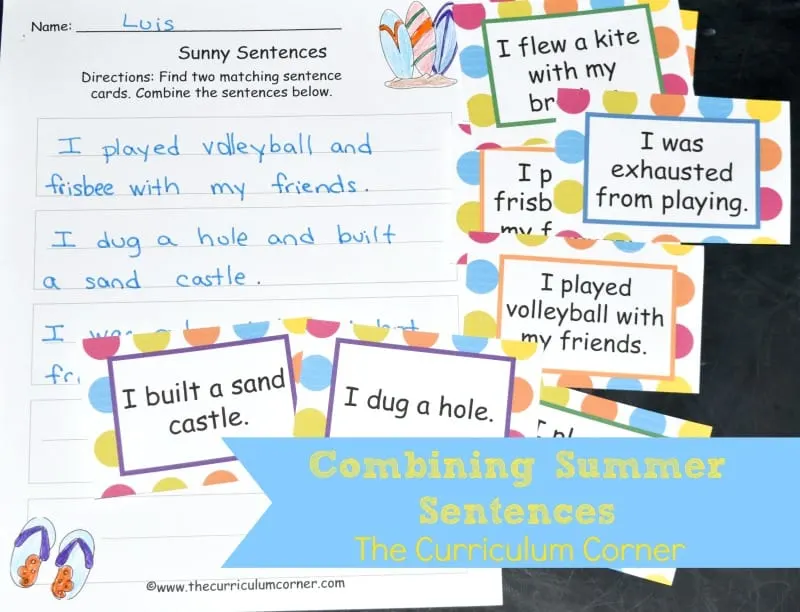 Name: Luis
Sunny Sentences
Directions: Find two matching sentence
cards. Combine the sentences below.
I played volleyball and
frisbee with my friends.
I dug a hole and built
a sand castle.
I
I flew a kite
with my
I was
exhausted
from playing.
I
my
I played
volleyball with
my friends.
I built a sand
castle.
I dug a hole.
I
Combining Summer
Sentences
The Curriculum Corner
©www.thecurriculumcorner.com